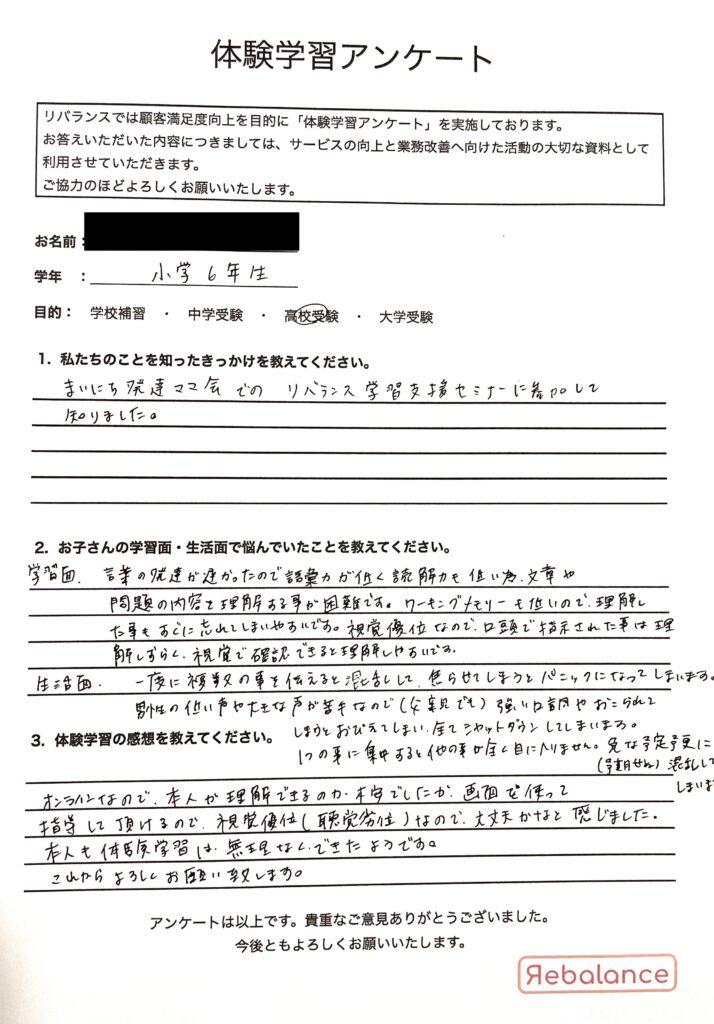 体験学習アンケート
リバランスでは顧客満足度向上を目的に「体験学習アンケート」を実施しております。
お答えいただいた内容につきましては、サービスの向上と業務改善へ向けた活動の大切な資料として
利用させていただきます。
ご協力のほどよろしくお願いいたします。
お名前:
学年 : 小学6年生
目的: 学校補習 ・ 中学受験 ・ 高校受験 ・ 大学受験
1. 私たちのことを知ったきっかけを教えてください。
まいにち発達ママ会での リバランス学習支援セミナーに参加して
知りました。
2. お子さんの学習面・生活面で悩んでいたことを教えてください。
学習面. 言葉の発達が遅かったので語彙力が低く読解力も低い為、文章や
問題の内容を理解する事が困難です。ワーキングメモリーも低いので、理解し
た事もすぐに忘れてしまいやすいです。視覚優位なので、口頭で指示された事は理
解しずらく、視覚で確認できると理解しやすいです。
生活面. 一度に複数の事を伝えると混乱して、焦らせてしまうとパニックになってしまいます。
男性の低い声や大きな声が苦手なので(父親でも)強い口調やおこられて
しまうとおびえてしまい、全てシャットダウンしてしまいます。
1つの事に集中すると他の事が全く目に入りません。急な予定変更に
(予期せん)混乱して
しまいま
3. 体験学習の感想を教えてください。
オンラインなので、本人が理解できるのか不安でしたが、画面を使って
指導して頂けるので、視覚優位(聴覚劣位)なので、大丈夫かなと感じました。
本人も体験学習は、無理なくできたようです。
これからよろしくお願い致します。
アンケートは以上です。貴重なご意見ありがとうございました。
今後ともよろしくお願いいたします。
Rebalance